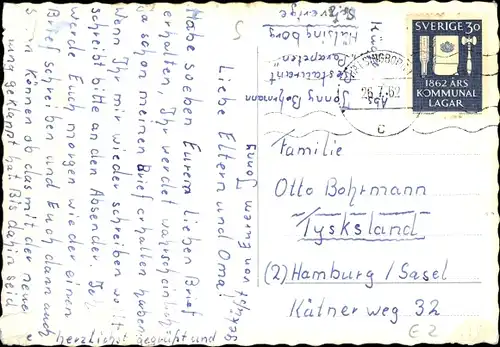 Liebe Eltern und Oma!
Habe soeben Euren lieben Brief
erhalten. Ihr werdet wahrscheinlich
da schon meinen Brief erhalten haben.
Wenn Ihr mir wieder schreiben wollt
schreibt bitte an den Absender. Ich
werde Euch morgen wieder einen
Brief schreiben und Euch dann auch
können ob das mit der neuen
geklappt hat. Bis dahin seid
herzlichst gegrüßt und
geküßt von Eurem Jonny
Abs.
Jonny Bohrmann
Restaurant
"Parapeten"
Hälsingborg
Sverige
SVERIGE 30
1862 ÅRS
KOMMUNAL
LAGAR
26.7.62
C
Familie
Otto Bohrmann
Tysksland
(2) Hamburg / Sasel
Kätner weg 32
€ 2